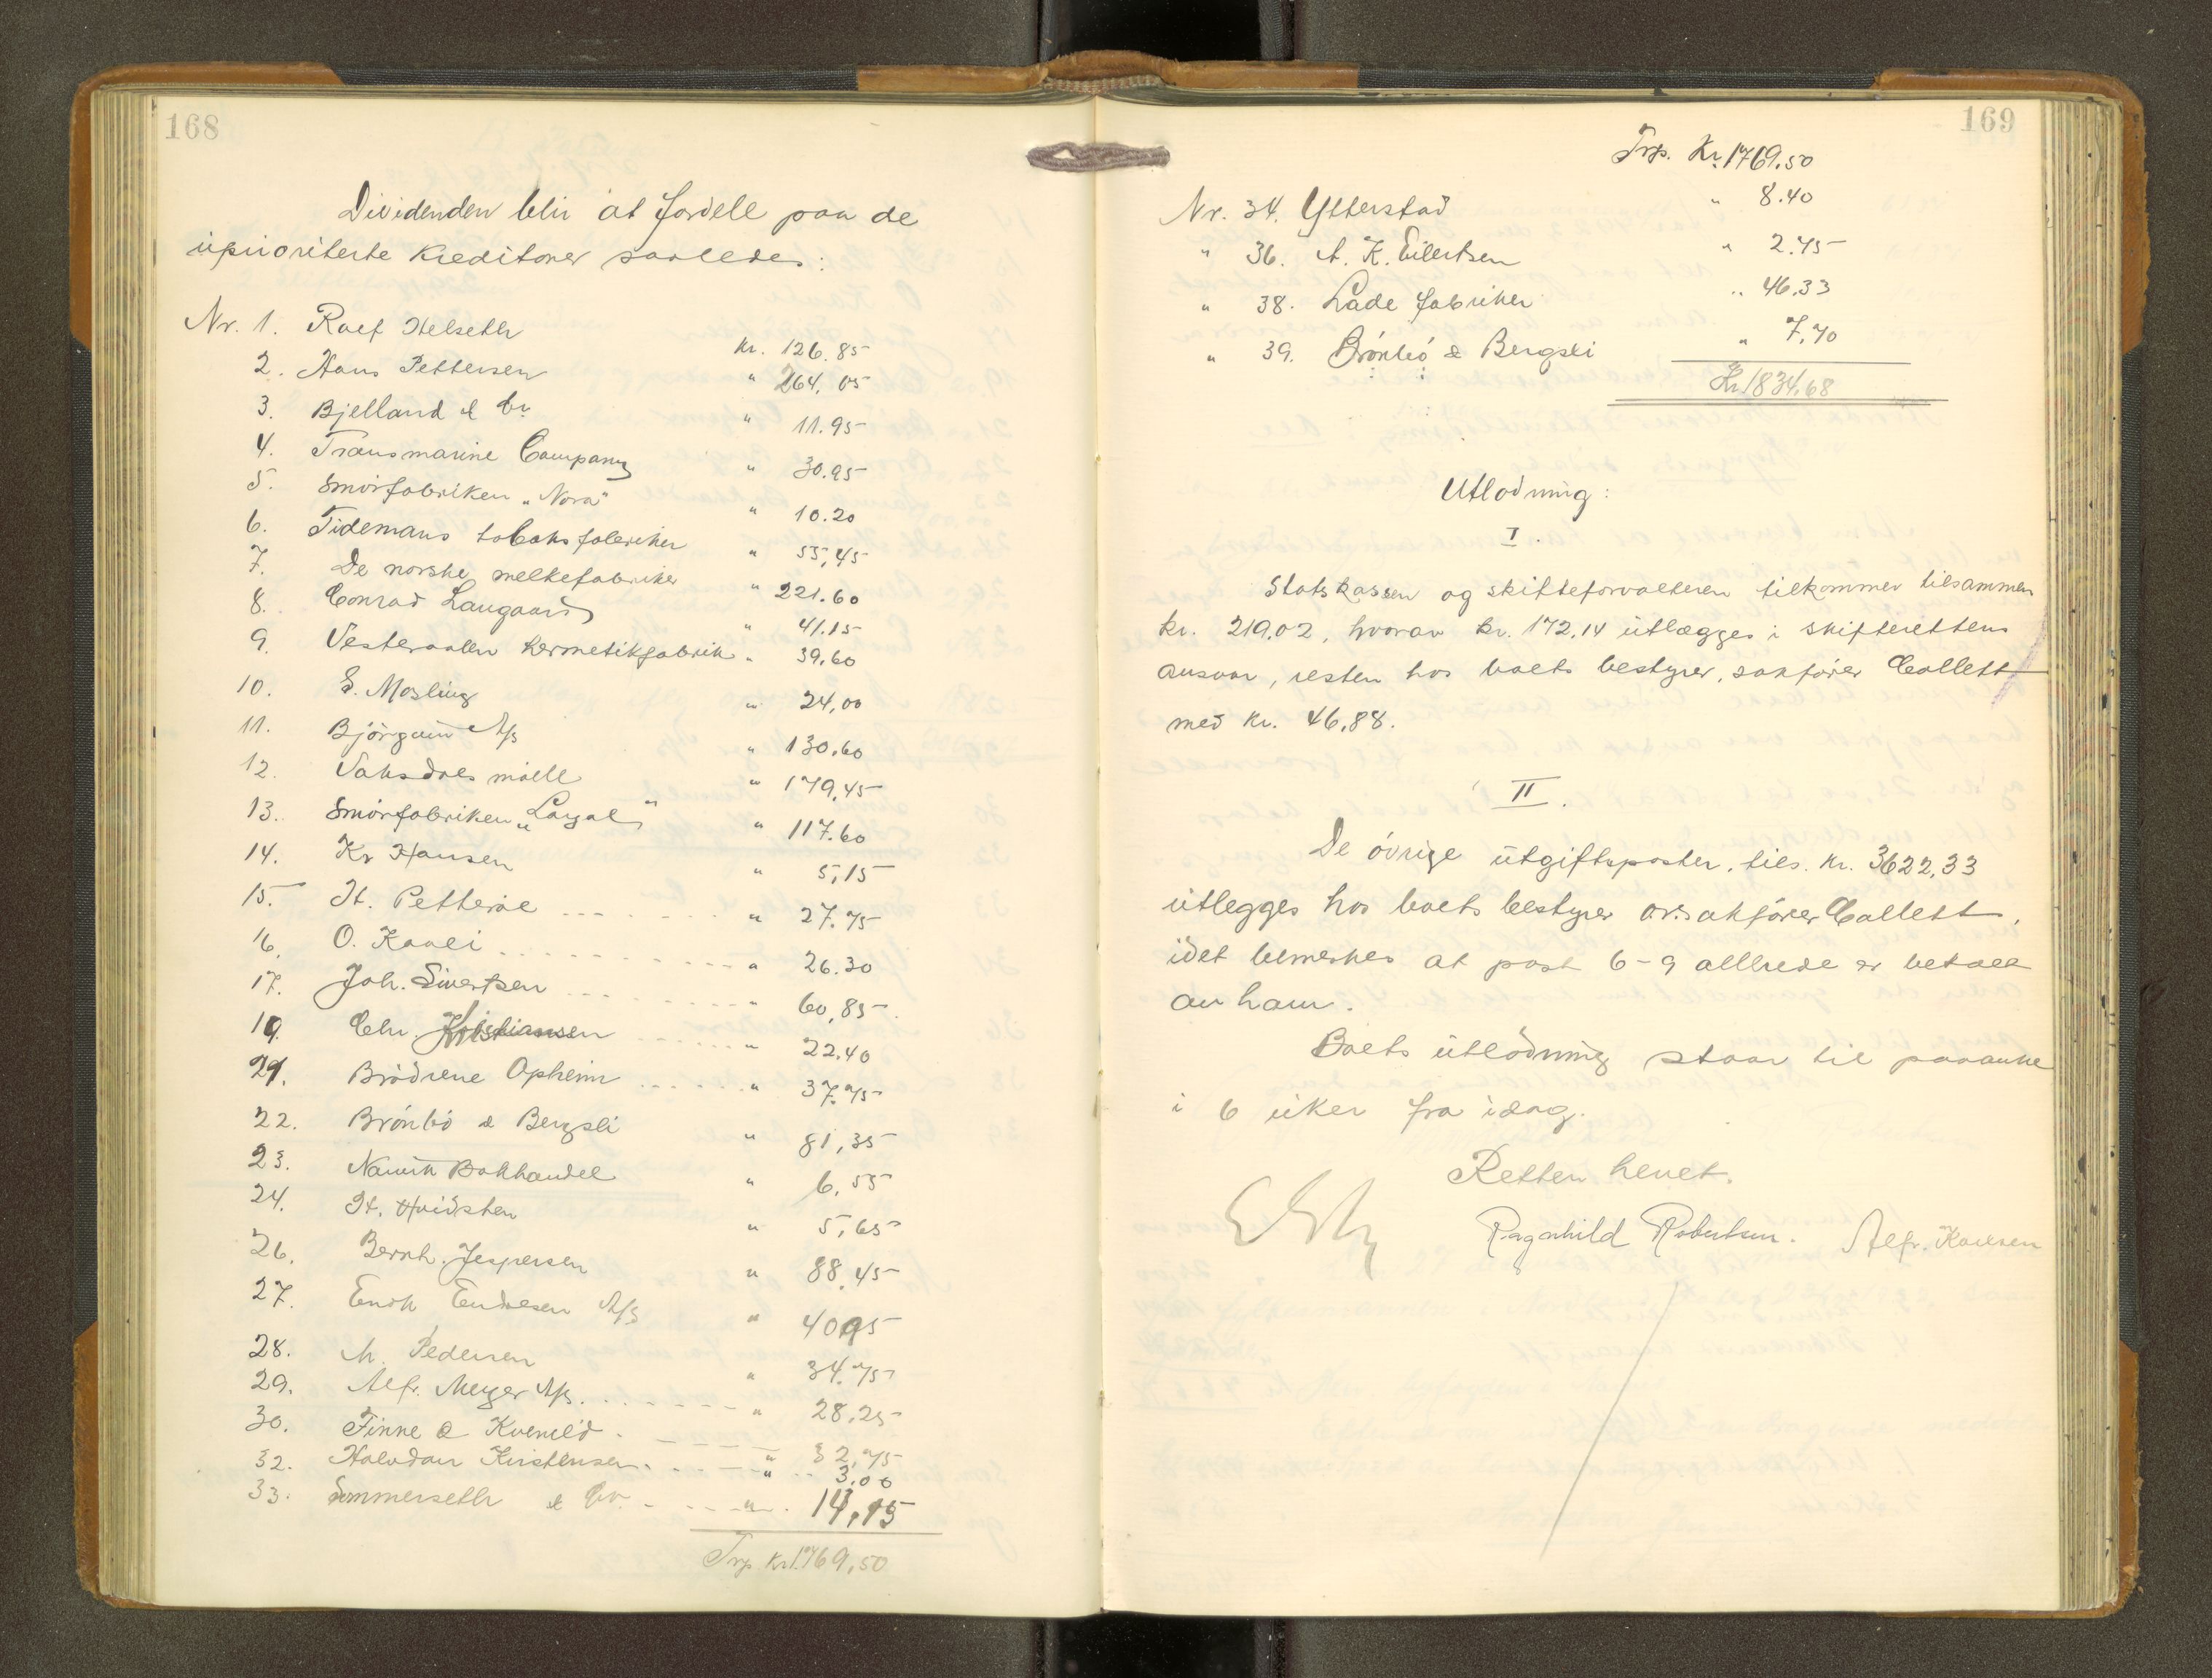 168
Dividenden blir at fordele paa de
uprioriterte kreditorer saaledes:
Nr. 1. Rolf Helseth kr. 126.85
2. Hans Pettersen " 264.05
3. Bjelland & Co. " 11.95
4. Transmarine Company " 30.95
5. Smörfabriken "Nora" " 10.20
6. Tidemans tobaksfabriker " 55,45
7. De norske melkefabriker " 221.60
8. Conrad Langaard " 41.15
9. Vesteraalen hermetikfabrik " 39.60
10. E. Mosling " 24,00
11. Björgum A/S " 130.60
12. Vaksdals mölle " 179,45
13. Smörfabriken "Loyal" " 117.60
14. Kr Hansen " 5,15
15. H. Petteröe " 27.75
16. O. Kavli " 26.30
17. Joh. Sivertsen " 60,85
19. Chr. Kristiansen " 22.40
21. Brödrene Opheim " 37.75
22. Brönbö & Bergsli " 81,35
23. Narvik Bokhandel " 6,55
24. H. Hvidsten " 5,65
26. Bernh. Jespersen " 88.45
27. Enok Endresen A/S " 40.95
28. M. Pedersen " 34.75
29. Alfr. Meyer A/S. " 28.25
30. Finne & Kvenild " 32,75
32. Halvdan Kristensen " 3.00
33. Sommerseth & Co. " 14,15
Trp kr. 1769,50
169
Trp. Kr. 1769.50
Nr. 34. Ytterstad " 8.40
" 36. A. K. Eilertsen " 2.75
" 38. Lade fabriker " 46.33
" 39. Brönbö & Bergsli " 7.70
Kr. 1834,68
Utlodning:
I.
Statskassen og skifteforvalteren tilkommer tilsammen
kr. 219,02, hvorav kr. 172,14 utlægges i skifterettens
ansvar, resten hos boets bestyrer, sakförer Collett
med kr. 46,88.
II.
De övrige utgiftsposter, tils. kr. 3622,33
utlegges hos boets bestyrer o.r.sakförer Collett,
idet bemerkes at post 6-9 allerede er betalt
av ham.
Boets utlodning staar til paaanke
i 6 uker fra idag.
Retten hevet.
Ragnhild Robertsen. Alfr. Karlsen